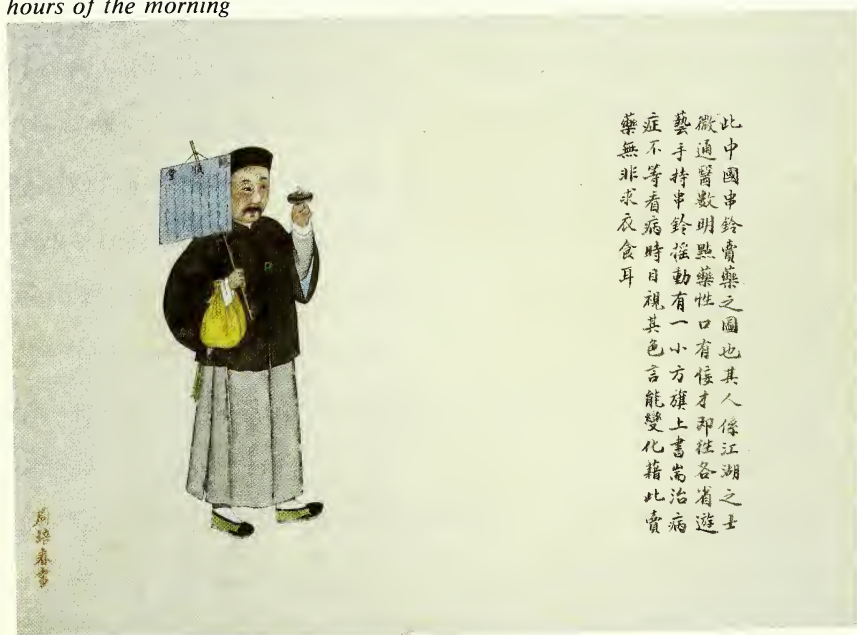 hours of the morning
此中國串鈴賣藥之圖也其人係江湖之士
微通醫數明點藥性口有佞才即往各省遊
藝手持串鈴搖動有一小方旗上書耑治病
症不等看病時目視其色言能變化藉此賣
藥無非求衣食耳
周培春畫